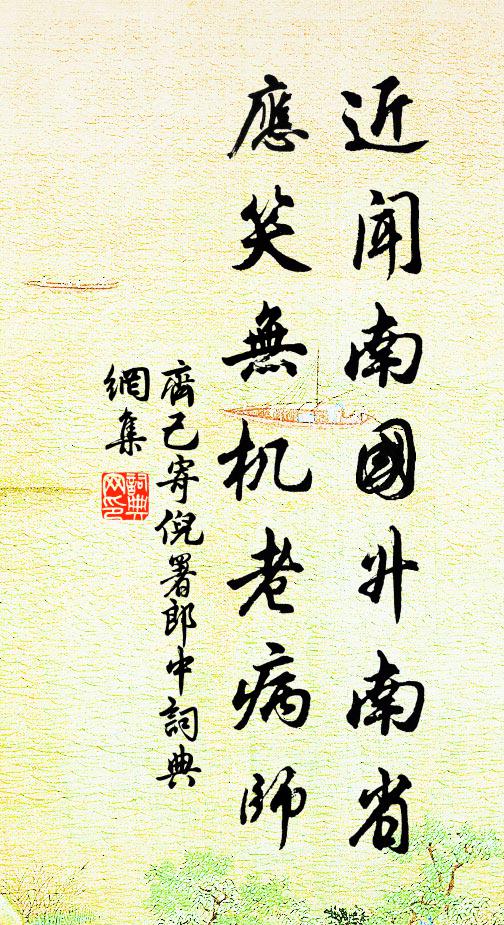 近聞南國升南省
應笑無机老病師
齊己寄倪署郎中詞典
網集
詞典
网印